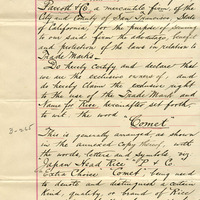 Parrott & Co. a mercantile firm of the
City and County of San Francisco, State
of California, for the purpose of securing
to our said firm the advantage, benefit
and protection of the laws in relation to
Trade Marks—
Do hereby certify and declare that
we are the exclusive owners of, and
do hereby claim the exclusive right
to the use of the Trade Mark and
Name for Rice, hereinafter set forth
to wit. the word
"Comet"
3-265
This is generally arranged, as shown
in the annexed copy thereof, with
the words, letters and symbols
Head Rice "P" & Co.
Extra Choice "Comet", being used
to denote and distinguish a certain
kind, quality, or brand of Rice